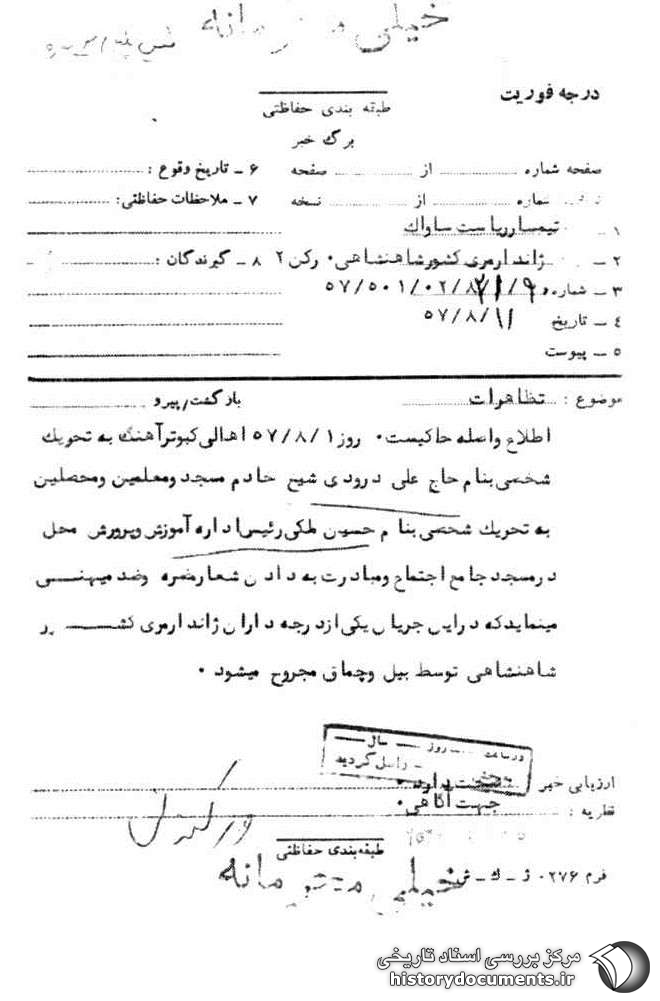 خیلی محرمانه
درجه فوریت
طبقه بندی حفاظتی
برگ خبر
صفحه شماره ........ از ........ صفحه
۶ ـ تاریخ وقوع :
شماره ........ از ........ نسخه
۷ ـ ملاحظات حفاظتی:
۱ ـ تیمسار ریاست ساواک
۲ ـ ژاندارمری کشور شاهنشاهی۰ رکن ۲
۸ ـ گیرندگان :
۳ ـ شماره
۴ ـ تاریخ ۵۷/۸/۱۱
۵ ـ پیوست
موضوع : تظاهرات
بازگشت/پیرو
اطلاع واصله حاکیست۰ روز ۵۷/۸/۱ اهالی کبوترآهنگ به تحریک
شخصی بنام حاج علی درودی شیخ خادم مسجد ومعلمین ومحصلین
به تحریک شخصی بنام حسین ملکی رئیس اداره آموزش وپرورش محل
درمسجد جامع اجتماع ومبادرت به دادن شعارمضره وضد میهنی
مینماید که دراین جریان یکی از درجه داران ژاندارمری کشور
شاهنشاهی توسط بیل وچماق مجروح میشود ۰
در ساعت ـــ روز ـــ سال ـــ
واصل گردید
ارزیابی خبر صحت دارد۰
نظریه : جهت آگاهی۰
طبقه بندی حفاظتی
خیلی محرمانه
فرم ۰۲۷۶ ژ ـ ک ـ ش
مرکز بررسی اسناد تاریخی
historydocuments.ir